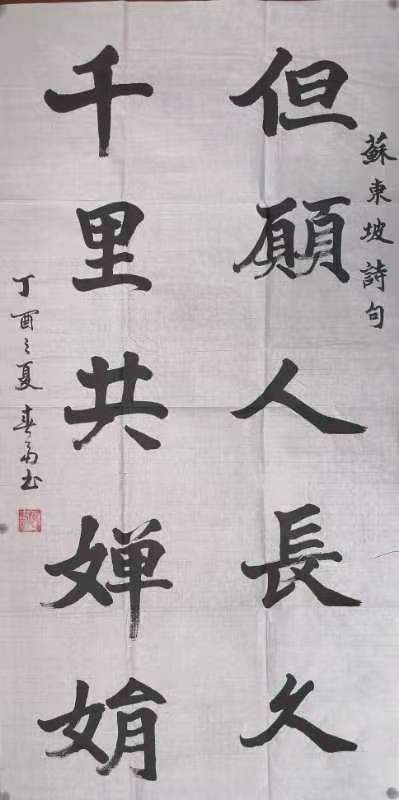 蘇東坡詩句
但願人長久
千里共婵娟
丁酉之夏 春 书